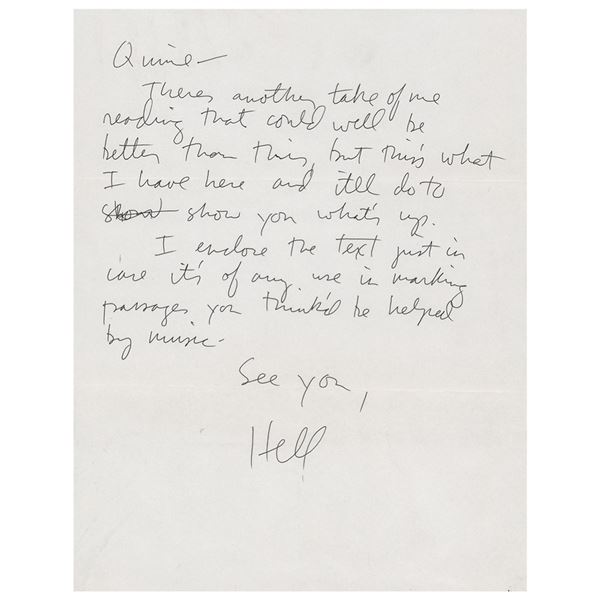 Quine—
Theres another take of me
reading that could well be
better than this, but this's what
I have here and it'll do to
show show you what's up.
I enclose the text just in
case it's of any use in marking
passages you think'd be helped
by music-
See you,
Hell